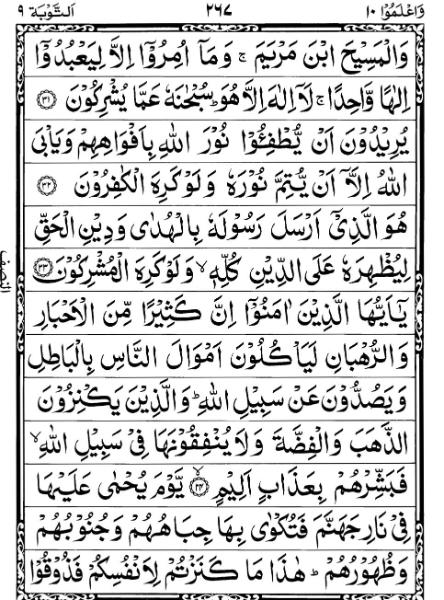 وَاعْلَمُوْٓا ١٠
٢٦٧
اَلتَّوْبَة ٩
وَالْمَسِيْحَ ابْنَ مَرْيَمَ ۚ وَمَآ اُمِرُوْٓا اِلَّا لِيَعْبُدُوْٓا
اِلٰهًا وَّاحِدًا ۚ لَآ اِلٰهَ اِلَّا هُوَ ؕ سُبْحٰنَهٗ عَمَّا يُشْرِكُوْنَ ۝۳۱
يُرِيْدُوْنَ اَنْ يُّطْفِـُٔوْا نُوْرَ اللّٰهِ بِاَفْوَاهِهِمْ وَيَاْبَى
اللّٰهُ اِلَّآ اَنْ يُّتِمَّ نُوْرَهٗ وَلَوْ كَرِهَ الْكٰفِرُوْنَ ۝۳۲
هُوَ الَّذِيْٓ اَرْسَلَ رَسُوْلَهٗ بِالْهُدٰى وَدِيْنِ الْحَقِّ
لِيُظْهِرَهٗ عَلَى الدِّيْنِ كُلِّهٖ ۙ وَلَوْ كَرِهَ الْمُشْرِكُوْنَ ۝۳۳
النصف
يٰٓاَيُّهَا الَّذِيْنَ اٰمَنُوْٓا اِنَّ كَثِيْرًا مِّنَ الْاَحْبَارِ
وَالرُّهْبَانِ لَيَاْكُلُوْنَ اَمْوَالَ النَّاسِ بِالْبَاطِلِ
وَيَصُدُّوْنَ عَنْ سَبِيْلِ اللّٰهِ ؕ وَالَّذِيْنَ يَكْنِزُوْنَ
الذَّهَبَ وَالْفِضَّةَ وَلَا يُنْفِقُوْنَهَا فِيْ سَبِيْلِ اللّٰهِ ۙ
فَبَشِّرْهُمْ بِعَذَابٍ اَلِيْمٍ ۝۳۴ يَّوْمَ يُحْمٰى عَلَيْهَا
فِيْ نَارِ جَهَنَّمَ فَتُكْوٰى بِهَا جِبَاهُهُمْ وَجُنُوْبُهُمْ
وَظُهُوْرُهُمْ ؕ هٰذَا مَا كَنَزْتُمْ لِاَنْفُسِكُمْ فَذُوْقُوْا